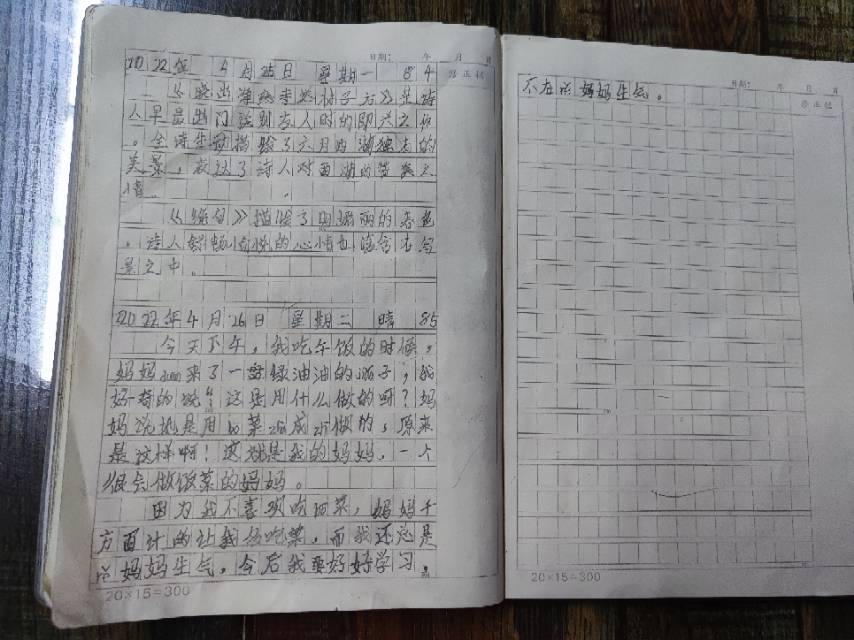 日期： 年 月 日
2022年 4月25日 星期一 84
《晓出净慈寺送林子方》是诗
人早晨出门送别友人时的即兴之作
。全诗生动描绘了六月西湖独特的
美景，表达了诗人对西湖的赞美之
情。
《绝句》描绘了明媚丽的春色
。诗人舒畅愉悦的心情也 含在写
景之中。
2022年4月26日 星期二 晴 85
今天下午，我吃午饭的时候，
妈妈 来了一盘绿油油的 子，我
好奇的说：“这是用什么做的呀？妈
妈说把是用 菜 成 做的，原来
是这样啊！这就是我的妈妈，一个
很会做饭菜的妈妈。
因为我不喜欢吃 菜，妈妈千
方百计的让我 吃菜，而我还总是
惹妈妈生气。今后我要好好学习，
20×15=300
日期： 年 月 日
不在惹妈妈生气。
20×15=300